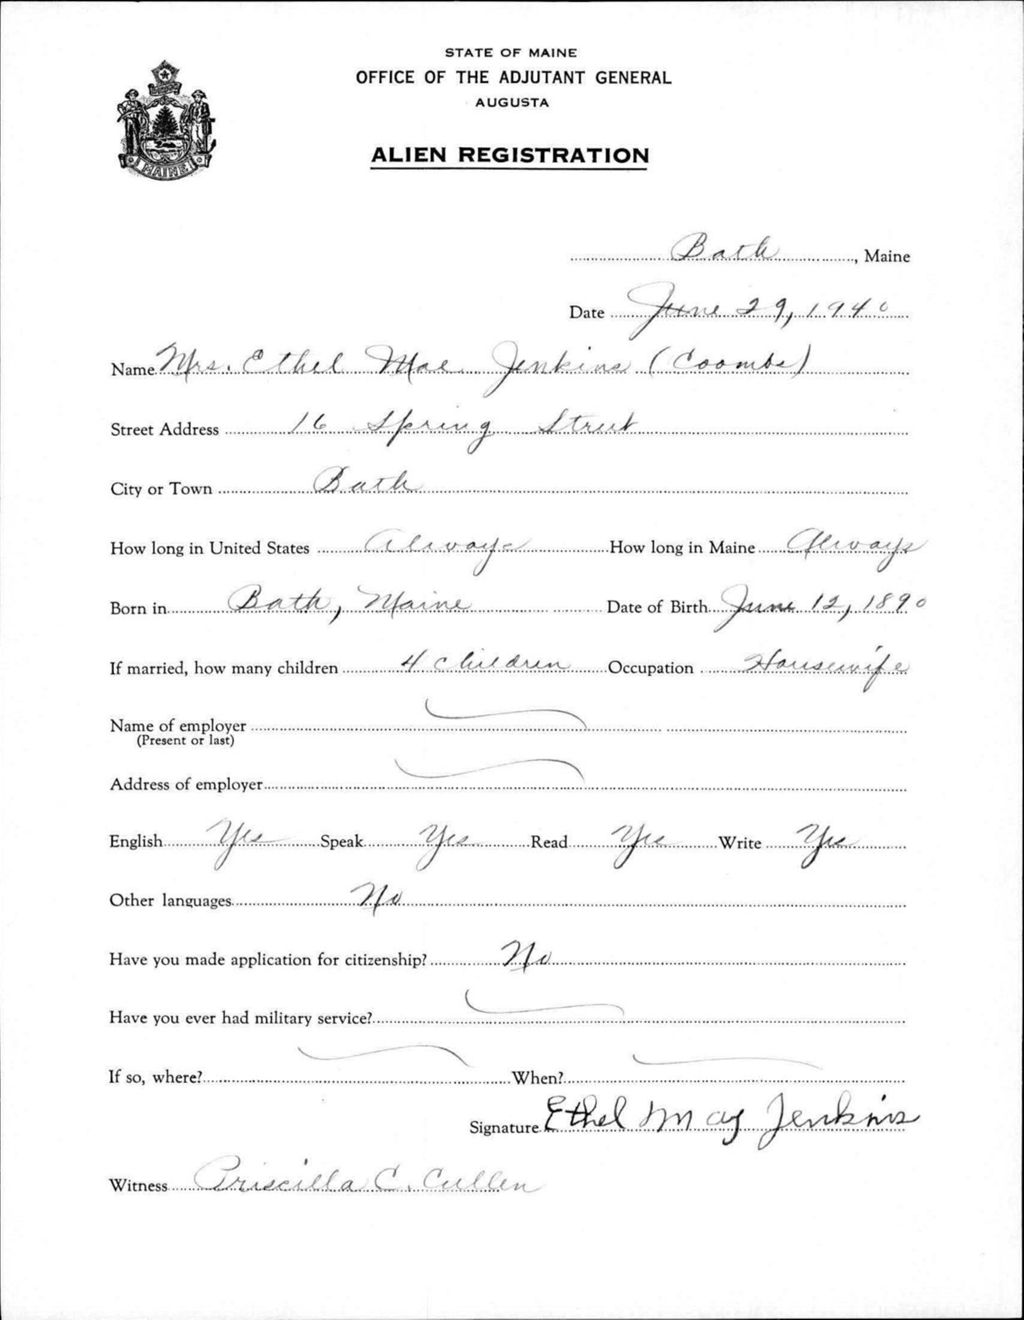 STATE OF MAINE
OFFICE OF THE ADJUTANT GENERAL
AUGUSTA
ALIEN REGISTRATION
MAINE
Bath, Maine
Date June 29, 1940
Name Mrs. Ethel Mae Jenkins (Coombs)
Street Address 16 Spring Street
City or Town Bath
How long in United States Always How long in Maine Always
Born in Bath, Maine Date of Birth June 12, 1890
If married, how many children 4 children Occupation Housewife
Name of employer
(Present or last)
Address of employer
English Yes Speak Yes Read Yes Write Yes
Other languages No
Have you made application for citizenship? No
Have you ever had military service?
If so, where? When?
Signature Ethel May Jenkins
Witness Priscilla C. Cullen